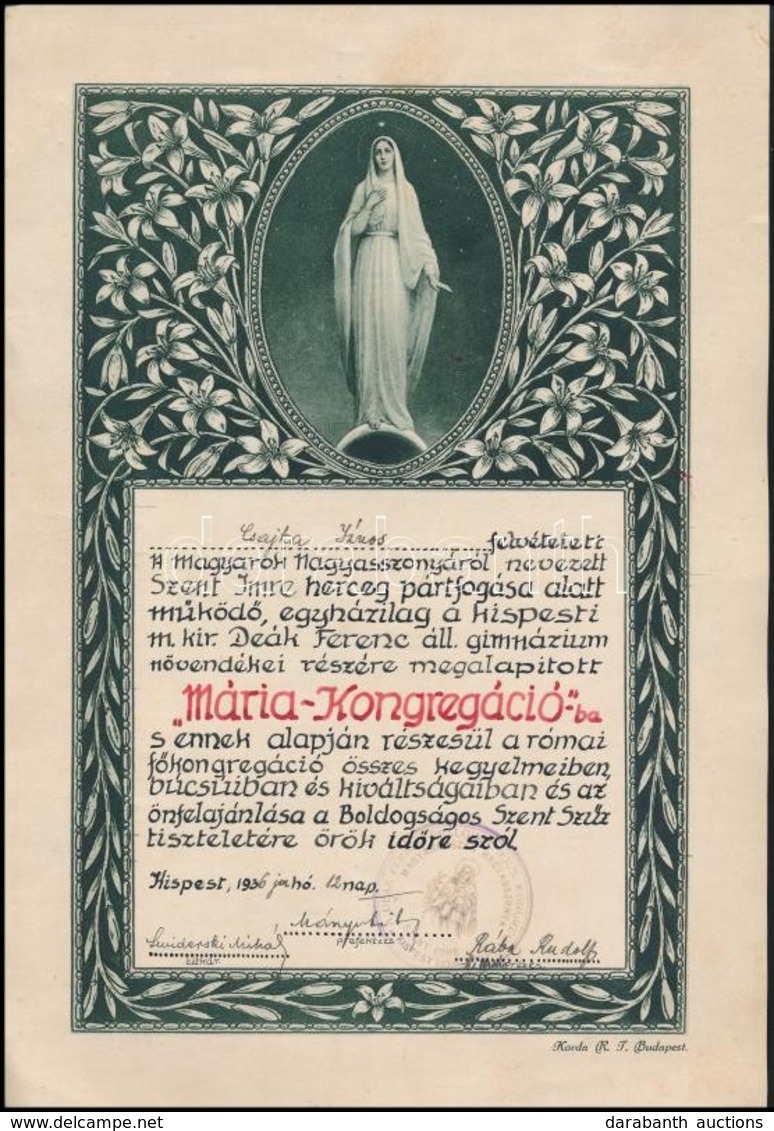 Csajka János felvétetett
A Magyarok Nagyasszonyáról nevezett
Szent Imre herceg pártfogása alatt
működő, egyházilag a kispesti
m. kir. Deák Ferenc áll. gimnázium
növendékei részére megalapitott
„Mária-Kongregáció-"ba
s ennek alapján részesül a római
főkongregáció összes kegyelmeiben,
búcsúiban és kiváltságaiban és az
önfelajánlása a Boldogságos Szent Szűz
tiszteletére örök időre szól.
Kispest, 1936 jun hó. 12 nap.
Swiderski Mihály
titkár.
prefektus
Rába Rudolf
Korda R. T. Budapest.
darabanth
darabanth auctions